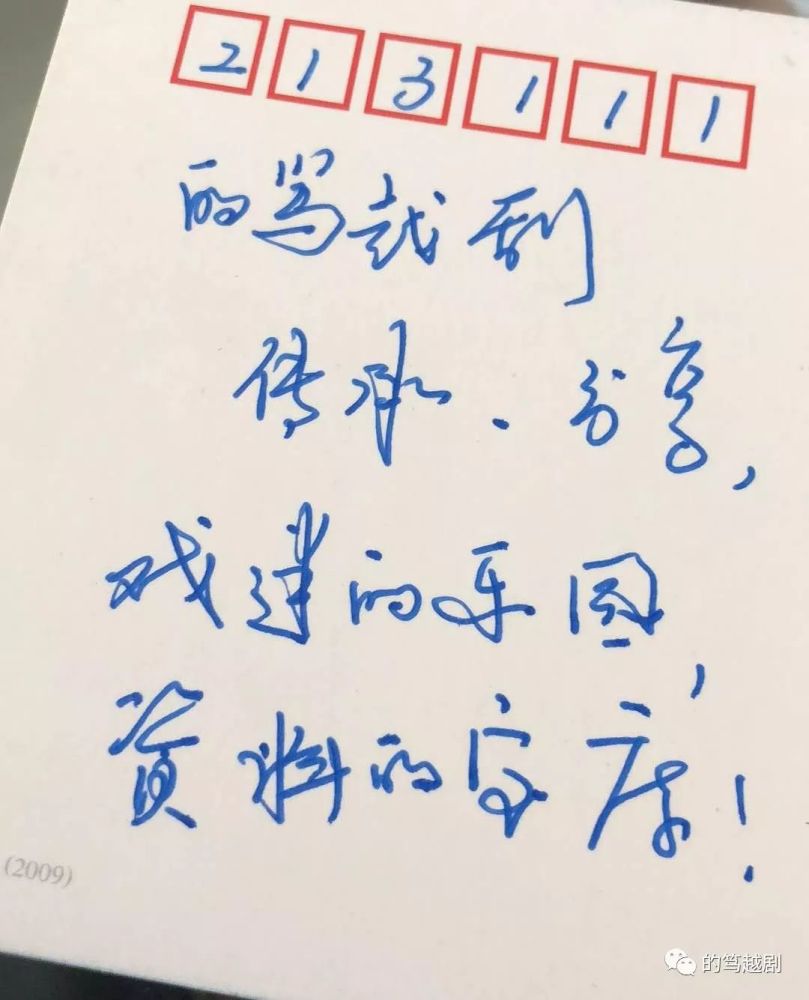 213111
的笃越剧
传承、分享,
戏迷的乐园,
資料的宝库!
(2009)
的笃越剧